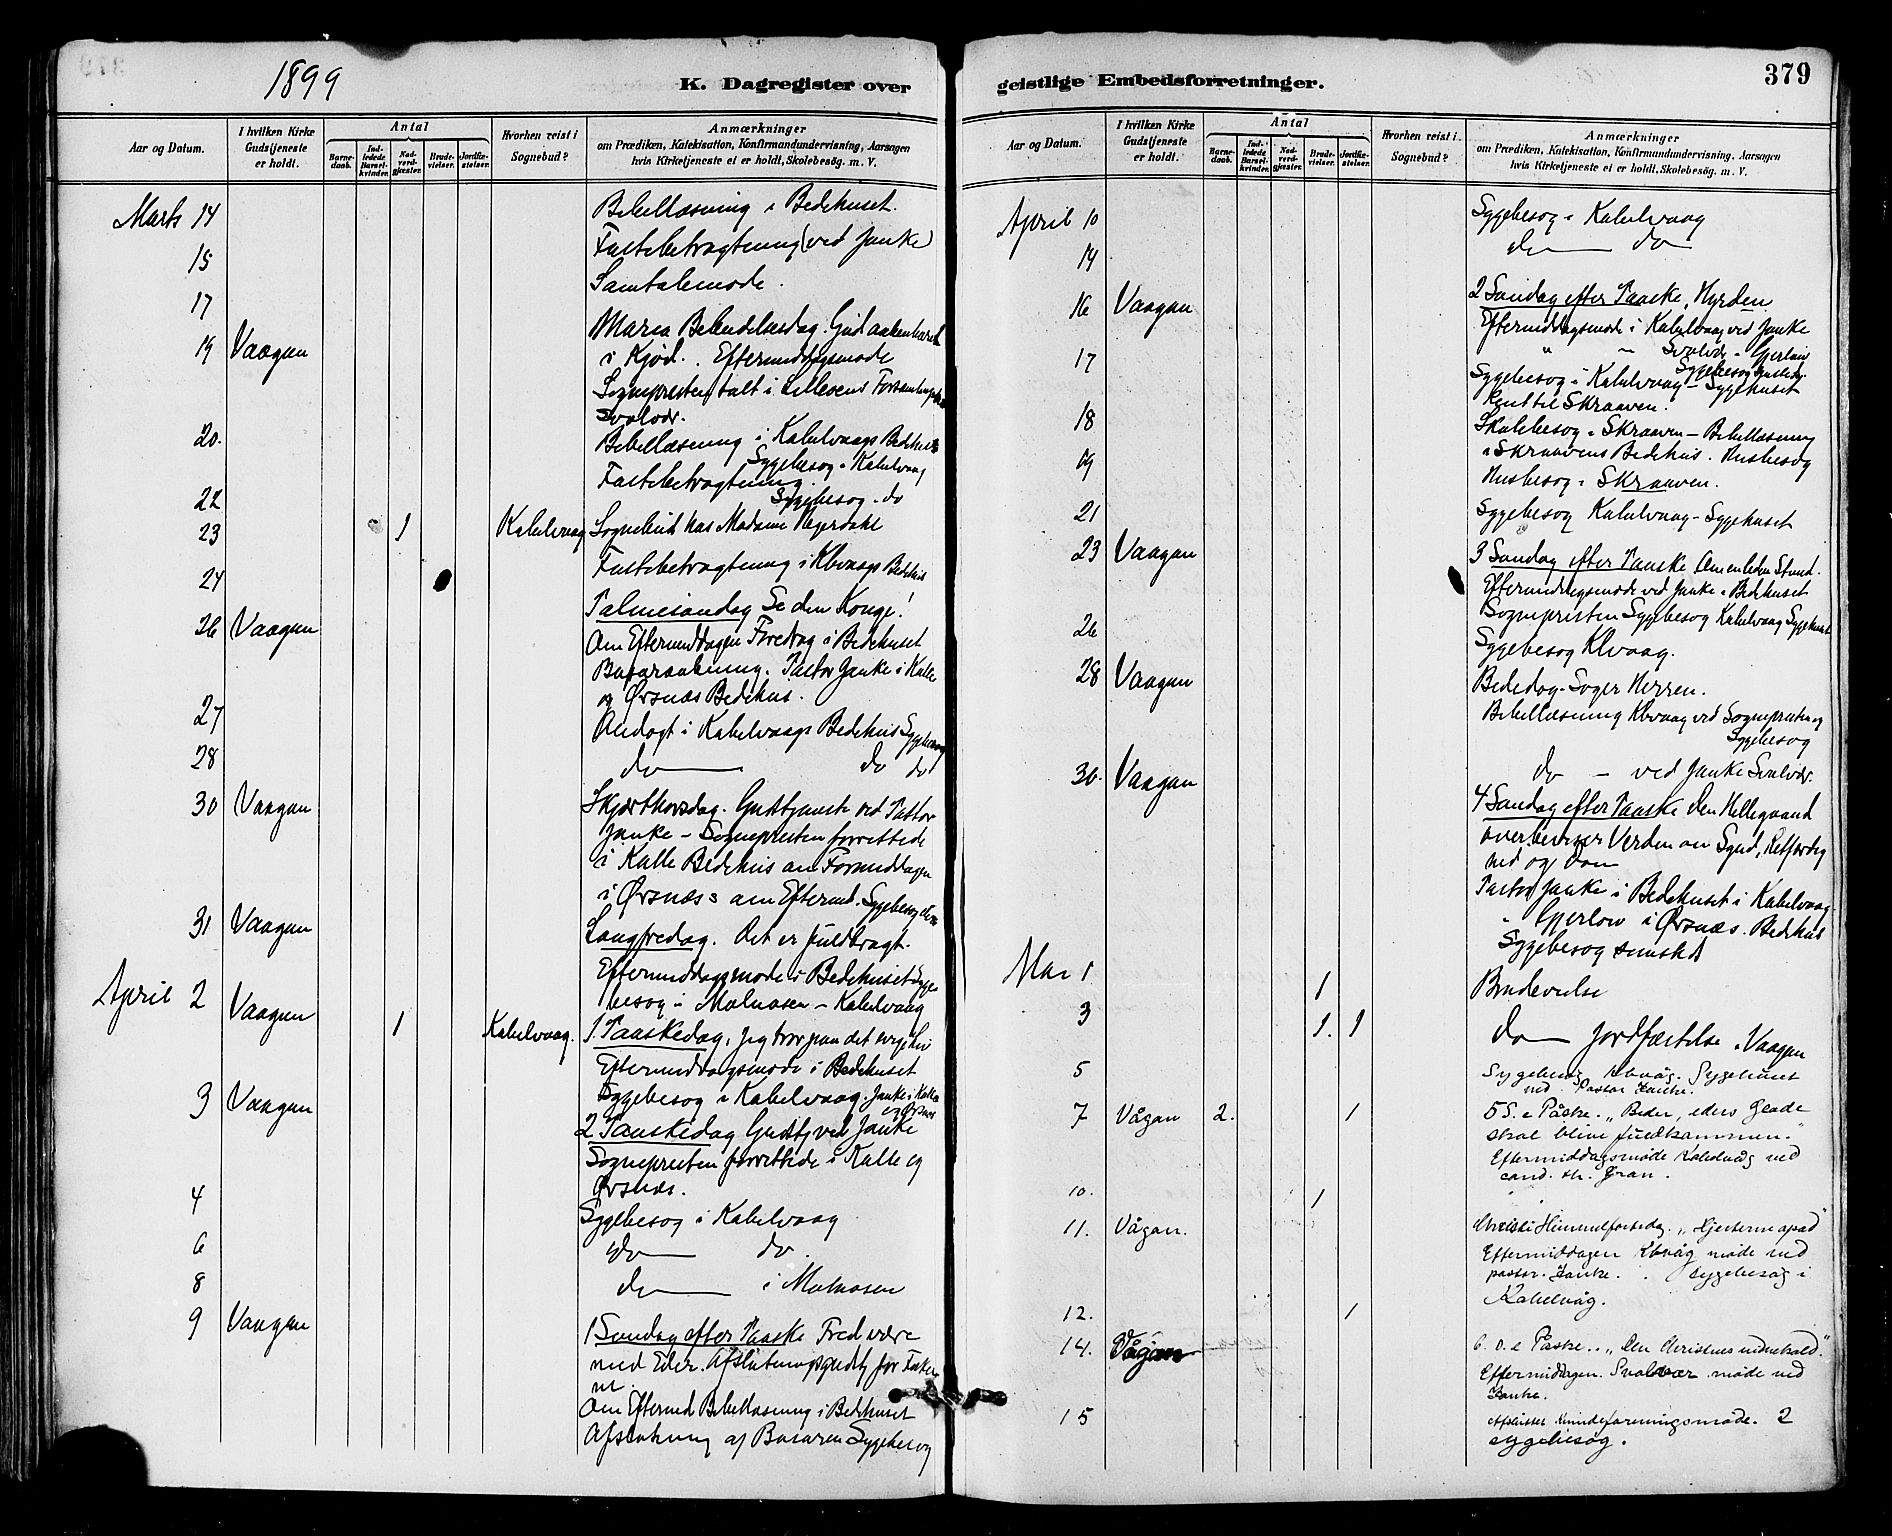 1899
K. Dagregister over
Aar og Datum.
I hvilken Kirke Gudstjeneste er holdt.
Antal
Barnedaab.
Indledede Barselkvinder.
Nadverdgjæster.
Brudevielser.
Jordfæstelser.
Hvorhen reist i Sognebud?
Anmærkninger
om Prædiken, Katekisation, Konfirmandundervisning, Aarsagen
hvis Kirketjeneste ei er holdt, Skolebesög. m. V.
Marts 14 Bibellæsning i Bedehuset.
15 Fastebetragtning (ved Janke)
17 Samtalemøde.
19 Vaagan Maria Bebudelsesdag. Gud aabenbaret
i Kjød. Eftermiddagsmøde
Sognepresten talt i Lillevens
Svolvær.
20. Bibellæsning i Kabelvaags Bedehus
Sygebesøg i Kabelvaag
22 Fastebetragtning.
Sygebesøg. do
23 1 Kabelvaag Sognebud hos Madame
24 Fastebetragtning i Kbvaags Bedehus
26 Vaagan Palmesøndag Se den Konge!
Om Eftermiddagen Foredrag i Bedehuset
Pastor Janke i Kalle
og Ørsnæs Bedehus.
27 Andagt i Kabelvaags Bedehus Sygebesøg
28 do do do
30 Vaagan Skjærthorsdag. Gudstjeneste ved Pastor
Janke – Sognepresten forrettede
i Kalle Bedehus om Formiddagen
i Ørsnæs om Eftermd. Sygebesøg
31 Vaagan Langfredag. Det er fuldbragt.
Eftermiddagsmøde i Bedehuset Syge
besøg i Molnosen – Kabelvaag
April 2 Vaagan 1 Kabelvaag. 1. Paaskedag, Jeg tror paa det evige Liv
Eftermiddagsmøde i Bedehuset
Sygebesøg i Kabelvaag. Janke i Kalle
og Ørsnæs
3 Vaagan 2 Paaskedag Gudstj ved Janke
Sognepresten forrettede i Kalle og
Ørsnæs.
4 Sygebesøg i Kabelvaag
6 do do.
8 do i Molnosen
9 Vaagan 1 Søndag efter Paaske Fred være
med Eder. Afslutningsgudstj for Fisker
ne.
Om Eftermd Bibellæsning i Bedehuset
Afslutning af Basaren Sygebesøg
geistlige Embedsforretninger.
379
Aar og Datum.
I hvilken Kirke Gudstjeneste er holdt.
Antal
Barnedaab.
Indledede Barselkvinder.
Nadverdgjæster.
Brudevielser.
Jordfæstelser.
Hvorhen reist i Sognebud?
Anmærkninger
om Prædiken, Katekisation, Konfirmandundervisning, Aarsagen
hvis Kirketjeneste ei er holdt, Skolebesög. m. V.
April 10 Sygebesøg i Kabelvaag
14 do do
16 Vaagan 2 Søndag efter Paaske, Hyrden
Eftermiddagsmøde i Kabelvaag ved Janke
" " Svolvær - Gjerløw
17 Sygebesøg i Kabelvaag – Sygehuset
til Skraaven.
18 Skolebesøg i Skraaven – Bibellæsning
i Skraavens Bedehus. Husbesøg
19 Husbesøg i Skraaven.
21 Sygebesøg Kabelvaag – Sygehuset
23 Vaagan 3 Søndag efter Paaske Om en liden Stund.
Eftermiddagsmøde ved Janke i Bedehuset
Sognepresten Sygebesøg Kabelvaag Sygehuset
26 Sygebesøg Kbvaag.
28 Vaagan Bededag - Søger Herren.
Bibellæsning Kbvaag ved Sognepresten og
Sygebesøg
do – ved Janke Svolvær.
30. Vaagan 4 Søndag efter Paaske Den Helligaand
overbeviser Verden om Synd, Retfærdig
hed og Dom
Pastor Janke i Bedehuset i Kabelvaag
" Gjerløw i Ørsnæs. Bedehus
Sygebesøg
Mai 1 1 Brudevielse
3 1. 1 do Jordfæstelse i Vaagan
5 Sygebesøg Kbvåg. Sygehuset
ved Pastor Janke.
7 Vågan 2. 1 5 S. e Påske. „Beder, eders Glæde
skal blive fuldkommen.“
Eftermiddagsmøde Kabelvåg ved
cand. th. Gran.
10. 1
11. Vågan. Christi Himmelfartsdag. „Hjerterne opad“
Eftermiddagen Kbvåg møde ved
pastor Janke. Sygebesøg i
Kabelvåg.
12. 1
14. Vågan 6. S. e Påske.. „Den Christnes
Eftermiddagen. Svolvær møde ved
Janke.
15 Kvindeforeningsmøde. 2
sygebesøg.